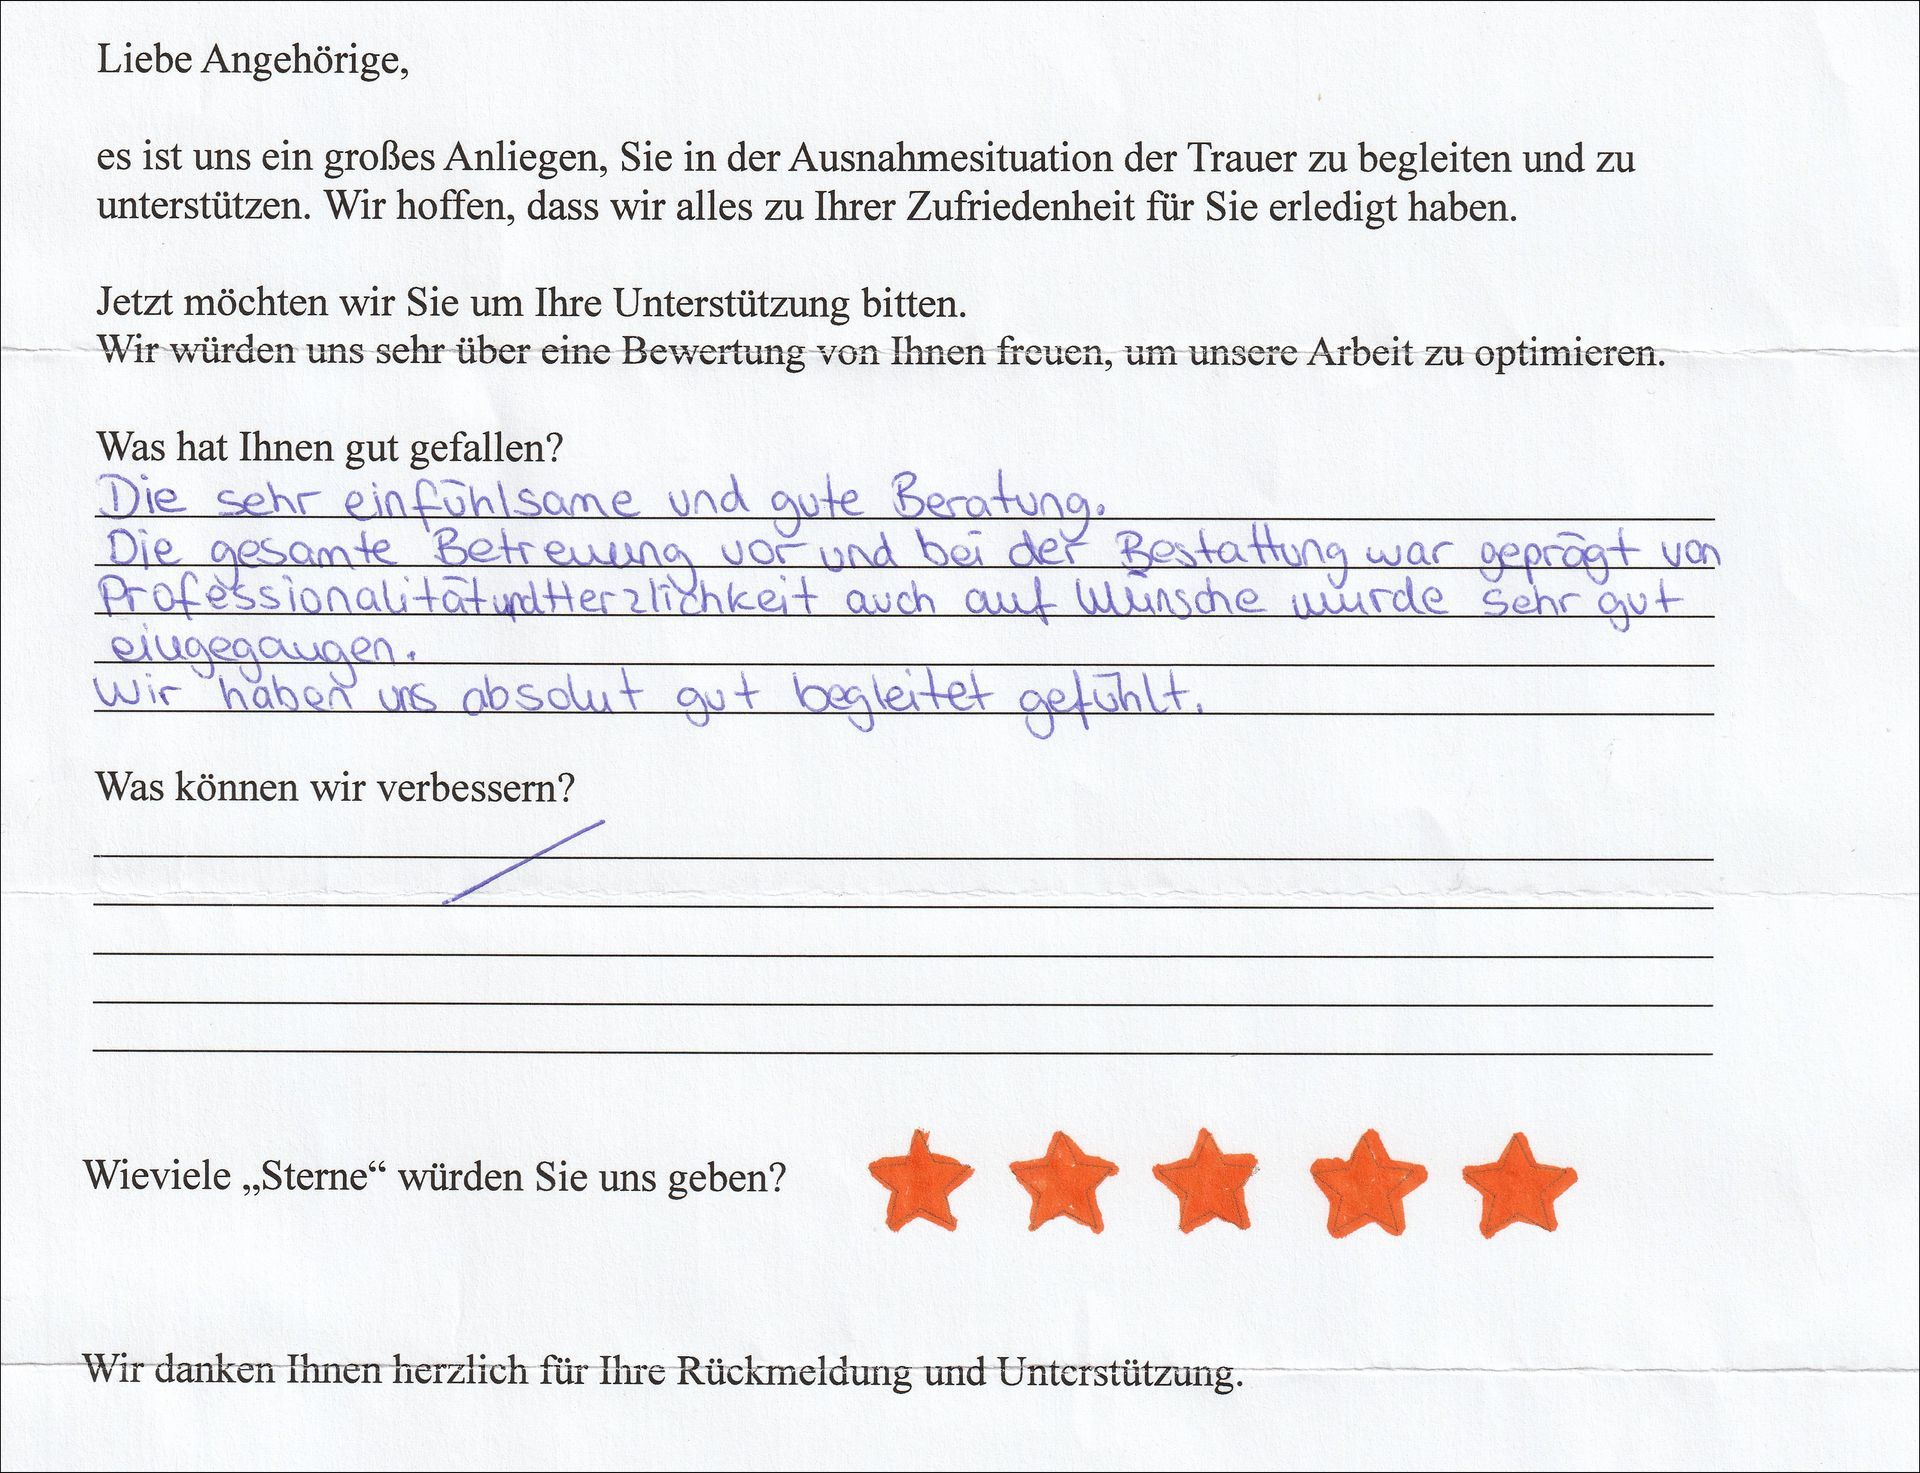 Liebe Angehörige,
es ist uns ein großes Anliegen, Sie in der Ausnahmesituation der Trauer zu begleiten und zu
unterstützen. Wir hoffen, dass wir alles zu Ihrer Zufriedenheit für Sie erledigt haben.
Jetzt möchten wir Sie um Ihre Unterstützung bitten.
Wir würden uns sehr über eine Bewertung von Ihnen freuen, um unsere Arbeit zu optimieren.
Was hat Ihnen gut gefallen?
Die sehr einfühlsame und gute Beratung.
Die gesamte Betreuung vor und bei der Bestattung war geprägt von
Professionalität und Herzlichkeit auch auf Wünsche wurde sehr gut
eingegangen.
Wir haben uns absolut gut begleitet gefühlt.
Was können wir verbessern?
Wieviele „Sterne“ würden Sie uns geben?
Wir danken Ihnen herzlich für Ihre Rückmeldung und Unterstützung.